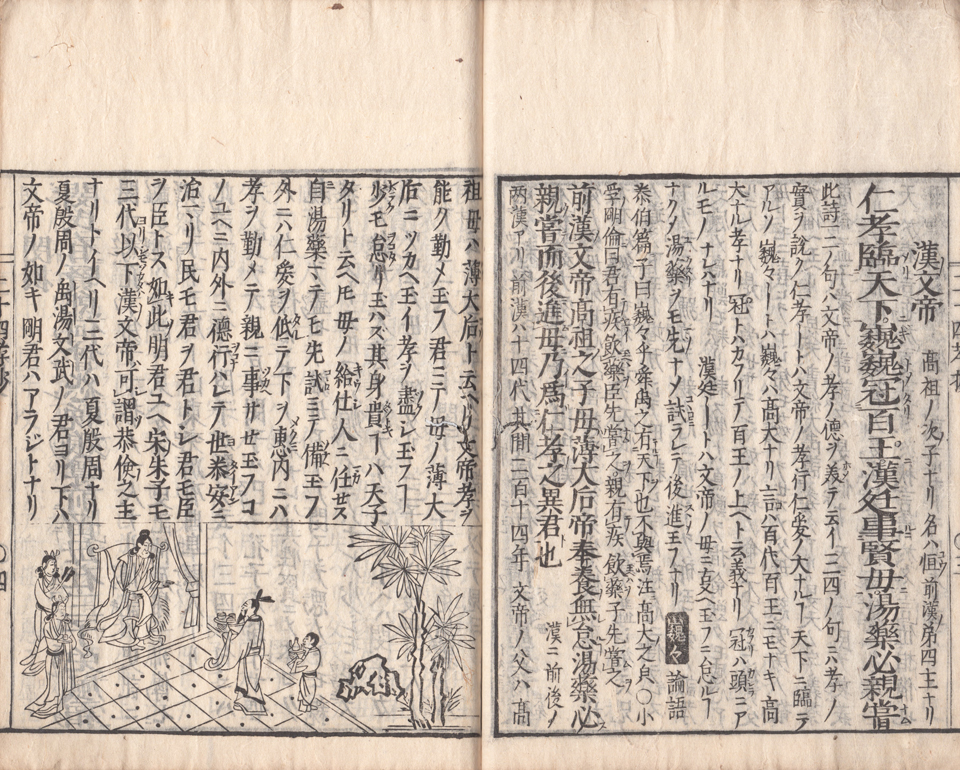 漢文帝 高祖ノ次ノ子ナリ名ハ恒前漢第四主ナリ
仁孝臨天下巍巍冠百王漢廷事賢母湯藥必親嘗
此詩一二ノ句ハ文帝ノ孝ノ德ヲ義テ云イ三四ノ句ニハ孝ノ
實ヲ說ク仁孝ートハ文帝ノ孝行仁愛ノ大ナルフ天下ニ臨テ
アルソ巍々ートハ巍々ハ高大ナリ言ハ百代百王ニモナキ高
大ナル孝ナリ冠トハカフリテ百王ノ上ヘト云義ナリ冠ハ頭ニア
ルモノナレハナリ 漢廷ートハ文帝ノ母ニ
ナクノ湯藥ヲモ先ナメ試ラレテ後進玉フナリ 巍々 論語
泰伯篇子曰巍々乎舜禹之有天下也不與焉注高大之皃〇小
學明倫曰君有疾飮藥臣先嘗之親有疾飮藥子先嘗之
前漢文帝高祖之子母薄太后帝奉養無怠湯藥必
親嘗而後進母乃爲仁孝之異君也 漢ニ前後ノ
兩漢アリ前漢ハ十四代其間二百十四年文帝ノ父ハ高
祖母ハ薄大后ト云ヘリ文帝孝ヲ
能ク勤メ玉フ君ニテ母ノ薄大
后ニツカヘ玉イ孝ヲ盡シ玉フフ
少モ怠リ玉ハズ其身貴フハ天子
タリト云ヘモ母ノ給仕人ニ任セス
自湯藥ニテモ先試ミテ備玉フ
外ニハ仁愛ヲ低テ下ヲ惠内ニハ
孝ヲ勤メテ親ニ事サセ玉フコ
ノユヘニ内外ニ德行ハレテ世泰安ニ
治ニリ民モ君ヲ君トレ君モ臣
ヲ臣トス如此明君ユヘ宋朱子モ
三代以下漢文帝可謂恭儉之主
ナリトイヘリ三代ハ夏殷周ナリ
夏殷周ノ禹湯文武ノ君ヨリ下ハ
文帝ノ如キ明君ハアラジトナリ